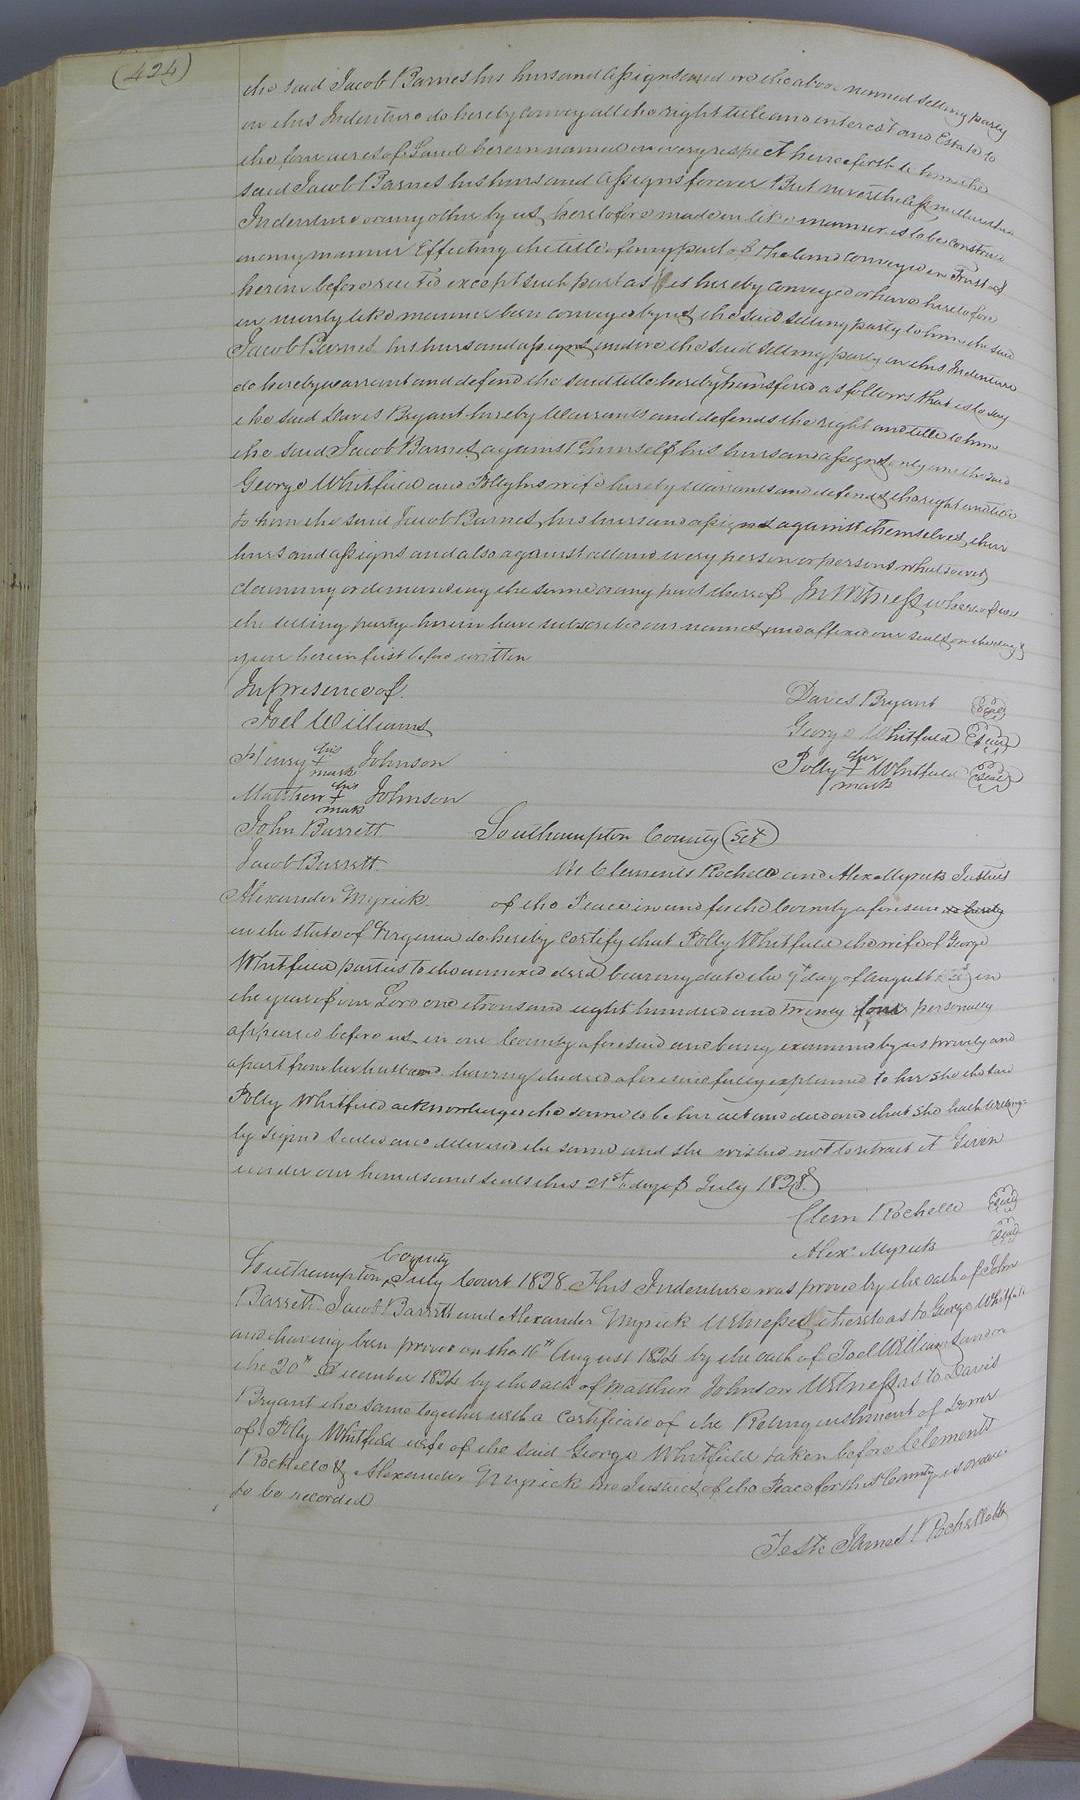 (424)
the said Jacob Barnes his heirs and assigns and we the above named selling party
in this Indenture do hereby convey all the right title and interest and Estate to
the four acres of Land herein named in every respect henceforth to him the
said Jacob Barnes his heirs and assigns forever But nevertheless neither this
Indenture or any other by us heretofore made in like manner is to be construed
in any manner Effecting the title of any part of the land conveyed in Trust as
herein before recited except such part as is hereby conveyed or have heretofore
in manly like manner been conveyed by us the said selling party to him the said
Jacob Barnes his heirs and assigns and we the said selling party in this Indenture
do hereby warrant and defend the said title hereby transfered as follows that is to say
the said Davis Bryant hereby Warrants and defends the right and title to him
the said Jacob Barnes against himself his heirs and assigns only and the said
George Whitfield and Polly his wife hereby Warrants and defends the right and title
to him the said Jacob Barnes his heirs and assigns against themselves their
heirs and assigns and also against all and every person or persons whatsoever
claiming or demanding the same or any part thereof In Witness whereof we
the selling party herein have subscribed our names and affixed our seals on the day &
year herein first before written
In presence of
Joel Williams
Henry his + mark Johnson
Matthew his + mark Johnson
John Barrett
Jacob Barrett
Alexander Myrick
Davis Bryant Seal
George Whitfield Seal
Polly her + mark Whitfield Seal
Southampton County Sct
We Clements Rochelle and Alex Myrick Justices
of the Peace in and for the County aforesaid
in the state of Virginia do hereby certify that Polly Whitfield the wife of George
Whitfield parties to the annexed deed bearing date the 9th day of August in
the year of our Lord one thousand eight hundred and twenty four personally
appeared before us in our County aforesaid and being examined by us privily and
apart from her husband having the deed aforesaid fully explained to her she the said
Polly Whitfield acknowledges the same to be her act and deed and that she hath willing-
ly signed sealed and delivered the same and she wished not to retract it Given
under our hands and seals this 21st day of July 1828
Clem Rochelle Seal
Alexr Myrick Seal
Southampton County July Court 1828 This Indenture was proved by the oath of John
Barrett Jacob Barrett and Alexander Myrick Witnesses thereto as to George Whitfield
and having been proved on the 16th August 1824 by the oath of Joel Williams and on
the 20th December 1824 by the oath of Matthew Johnson Witness as to Davis
Bryant the same together with a certificate of the Relinquishment of Dower
of Polly Whitfield wife of the said George Whitfield taken before Clements
Rochelle & Alexander Myrick two Justices of the Peace for this County is ordered
to be recorded
Teste James Rochelle